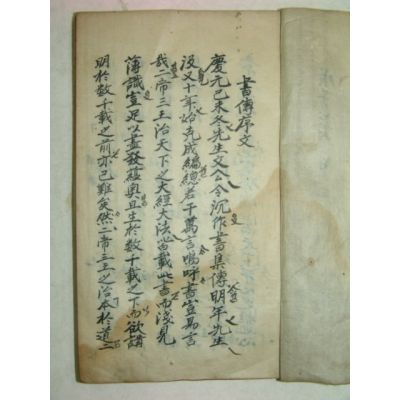 書傳序文
慶元已未冬先生文公令沉作書集傳明年先生
沒又十年始克成編總若干萬言嗚呼書豈易言
哉二帝三王治天下之大經大法皆載此書而淺見
薄識豈足以盡發蘊奧且生於数千載之下而欲講
明於数千載之前亦已難矣然二帝三王之治本於道二